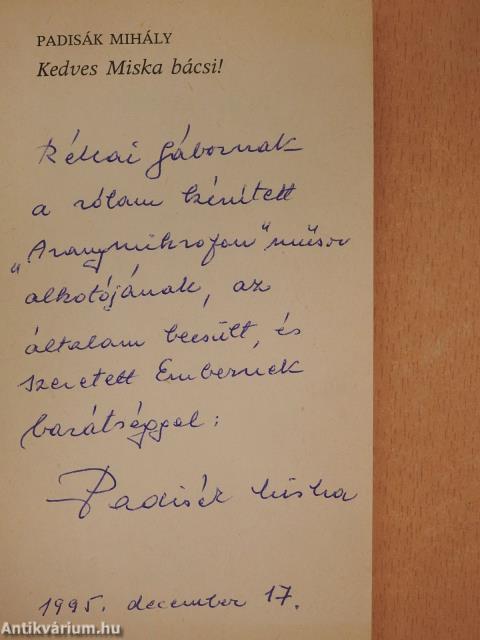 PADISÁK MIHÁLY
Kedves Miska bácsi!
Rékai Gábornak
a rólam készített
„Aranymikrofon" műsor
alkotójának, az
általam becsült, és
szeretett Embernek
barátsággal:
Padisák Miska
1995. december 17.
Antikvárium.hu